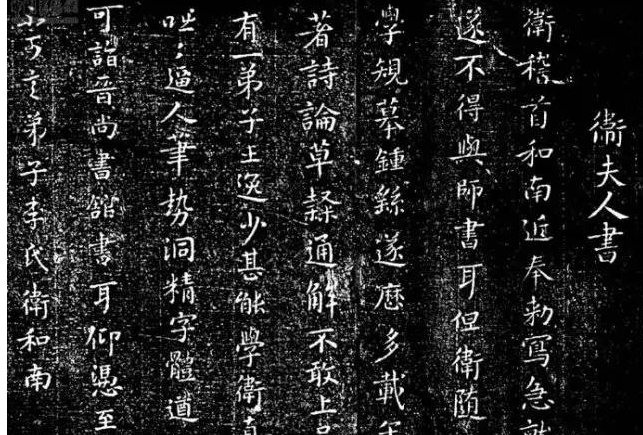 衛夫人書
衛稽首和南近奉勅寫急就
遂不得與師書耳但衛隨
學規摹鍾繇遂歷多載年
著詩論草隸通解不敢上
有一弟子王逸少甚能學衛真
咄咄逼人筆勢洞精字體遒
可詣晉尚書館書耳仰憑至
弟子李氏衛和南